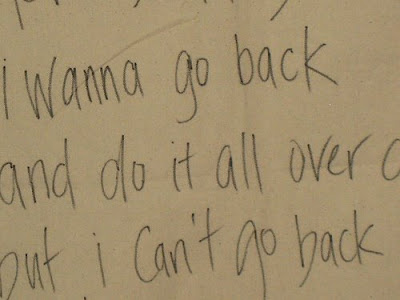 i wanna go back
and do it all over
but i can't go back